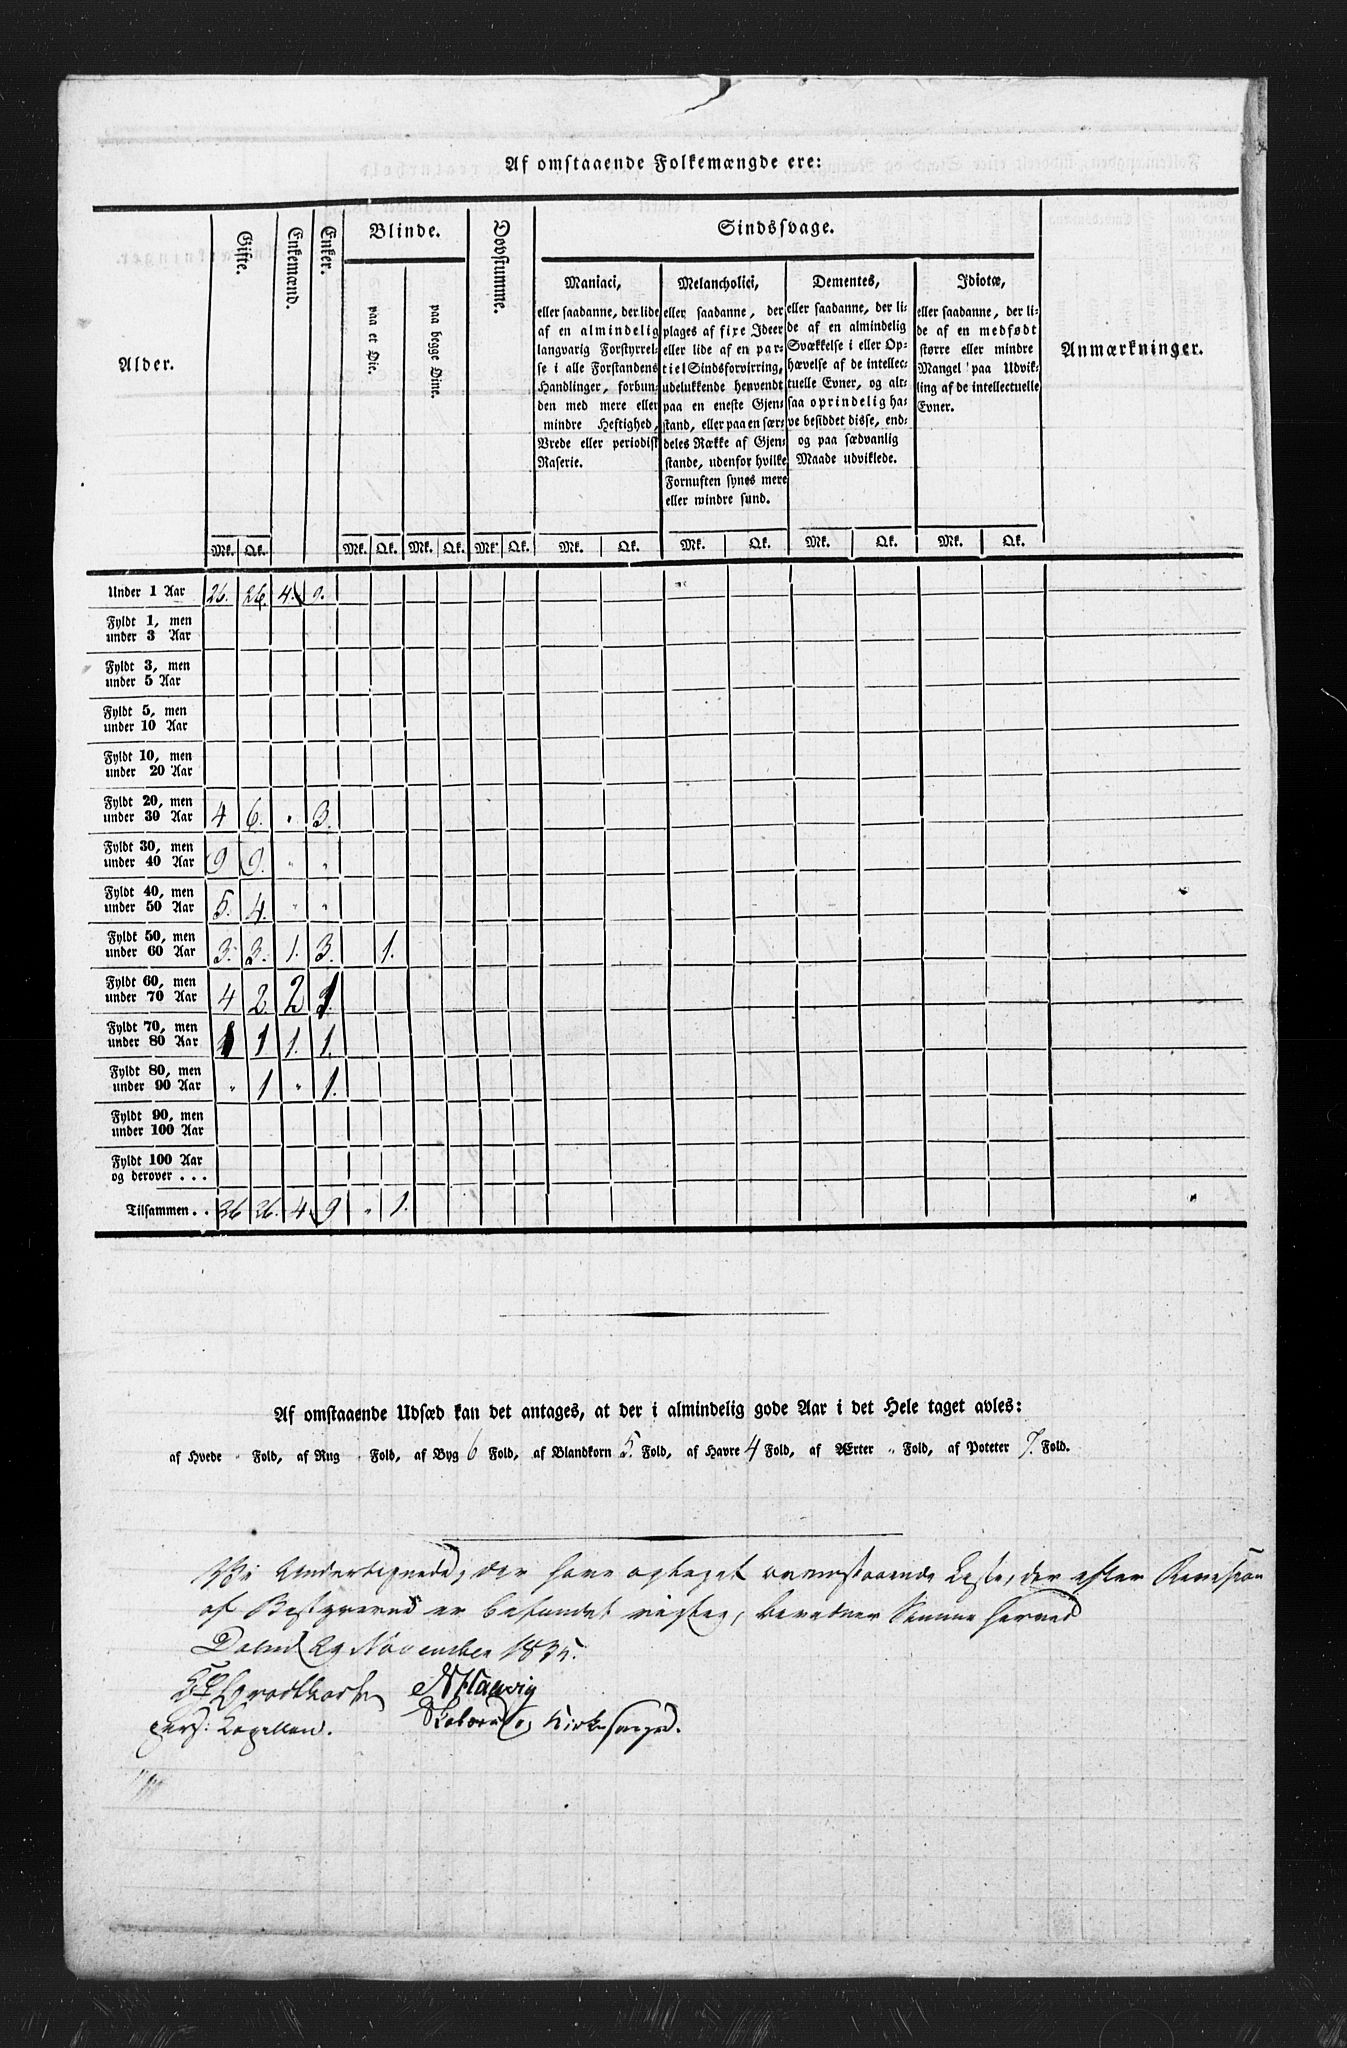 Af omstaaende Folkemængde ere:
Alder.
Gifte.
Enkemænd.
Enker.
Blinde.
paa et Øie.
paa begge Øine.
Dovstumme.
Sindssvage.
Maniaci,
eller saadanne, der lide
af en almindelig
langvarig Forstyrrel-
se i alle Forstandens
Handlinger, forbun-
den med mere eller
mindre Heftighed,
Vrede eller periodisk
Raserie.
Melancholici,
eller saadanne, der
plages af fixe Ideer
eller lide af en par-
tiel Sindsforvirring,
udelukkende henvendt
paa en eneste Gjen-
stand, eller paa en sær-
deles Række af Gjen-
stande, udenfor hvilke
Fornuften synes mere
eller mindre sund.
Dementes,
eller saadanne, der li-
de af en almindelig
Svækkelse i eller Op-
hævelse af de intellec-
tuelle Evner, og alt-
saa oprindelig ha-
ve besiddet disse, end-
og paa sædvanlig
Maade udviklede.
Idiotæ,
eller saadanne, der li-
de af en medfødt
større eller mindre
Mangel paa Udvik-
ling af de intellectuelle
Evner.
Anmærkninger.
Mk. Qk. Mk. Qk. Mk. Qk. Mk. Qk. Mk. Qk. Mk. Qk. Mk. Qk. Mk. Qk.
Under 1 Aar 26. 26. 4. 9.
Fyldt 1, men
under 3 Aar
Fyldt 3, men
under 5 Aar
Fyldt 5, men
under 10 Aar
Fyldt 10, men
under 20 Aar
Fyldt 20, men
under 30 Aar 4 6. " 3.
Fyldt 30, men
under 40 Aar 9 9. " "
Fyldt 40, men
under 50 Aar 5. 4. " "
Fyldt 50, men
under 60 Aar 3. 3. 1. 3. 1.
Fyldt 60, men
under 70 Aar 4 2. 2 1.
Fyldt 70, men
under 80 Aar 1 1 1. 1.
Fyldt 80, men
under 90 Aar " 1 " 1.
Fyldt 90, men
under 100 Aar
Fyldt 100 Aar
og derover . . .
Tilsammen . . 26 26. 4. 9 " 1.
Af omstaaende Udsæd kan det antages, at der i almindelig gode Aar i det Hele taget avles:
af Hvede " Fold, af Rug " Fold, af Byg 6 Fold, af Blandkorn 5. Fold, af Havre 4 Fold, af Ærter " Fold, af Poteter 7. Fold.
Vi Undertegnede, der have optaget ovenstaaende Liste, der efter Revision
af Bestyrerne er befundet rigtig, bevidner Samme herved
29 November 1835.
pers: Kapellan. og Kirkesanger.